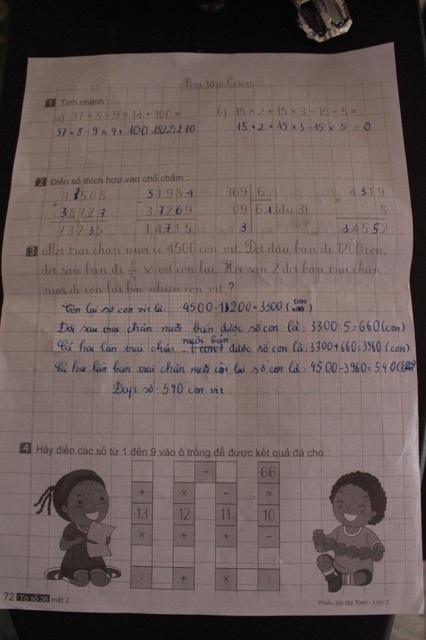 Bài tập Toán
1 Tính nhanh :
a) 37 × 8 – 9 × 14 + 100 = b) 15 × 2 + 15 × 3 – 15 × 5 =
15 × 2 + 15 × 3 – 15 × 5 = 0
2 Điền số thích hợp vào chỗ chấm :
51984 369 6 × 4319
38727 37269 09 61 (dư 3) 8
73235 14715 3 34552
3 Một trại chăn nuôi có 4500 con vịt. Đợt đầu bán đi 1200 con,
đợt sau bán đi 1/5 số vịt còn lại. Hỏi sau 2 đợt bán trại chăn
nuôi đi còn lại bao nhiêu con vịt ?
Còn lại số con vịt là: 4500 - 1200 = 3300 (con
Đợt sau trại chăn nuôi bán được số con là : 3300 : 5 = 660 (con)
nuôi bán
Cả hai lần trại chăn (con) được số con là: 3300 + 660 = 3960 (con)
Cả hai lần bán trại chăn nuôi còn lại số con là : 4500 - 3960 = 540
Đáp số : 540 con vịt
4 Hãy điền các số từ 1 đến 9 vào ô trống để được kết quả đã cho :
– 66
+ × – =
13 12 11 10
× + + –
: + × :
72 Tờ số 36 mặt 2 Phiếu bài tập Toán - Lớp 3